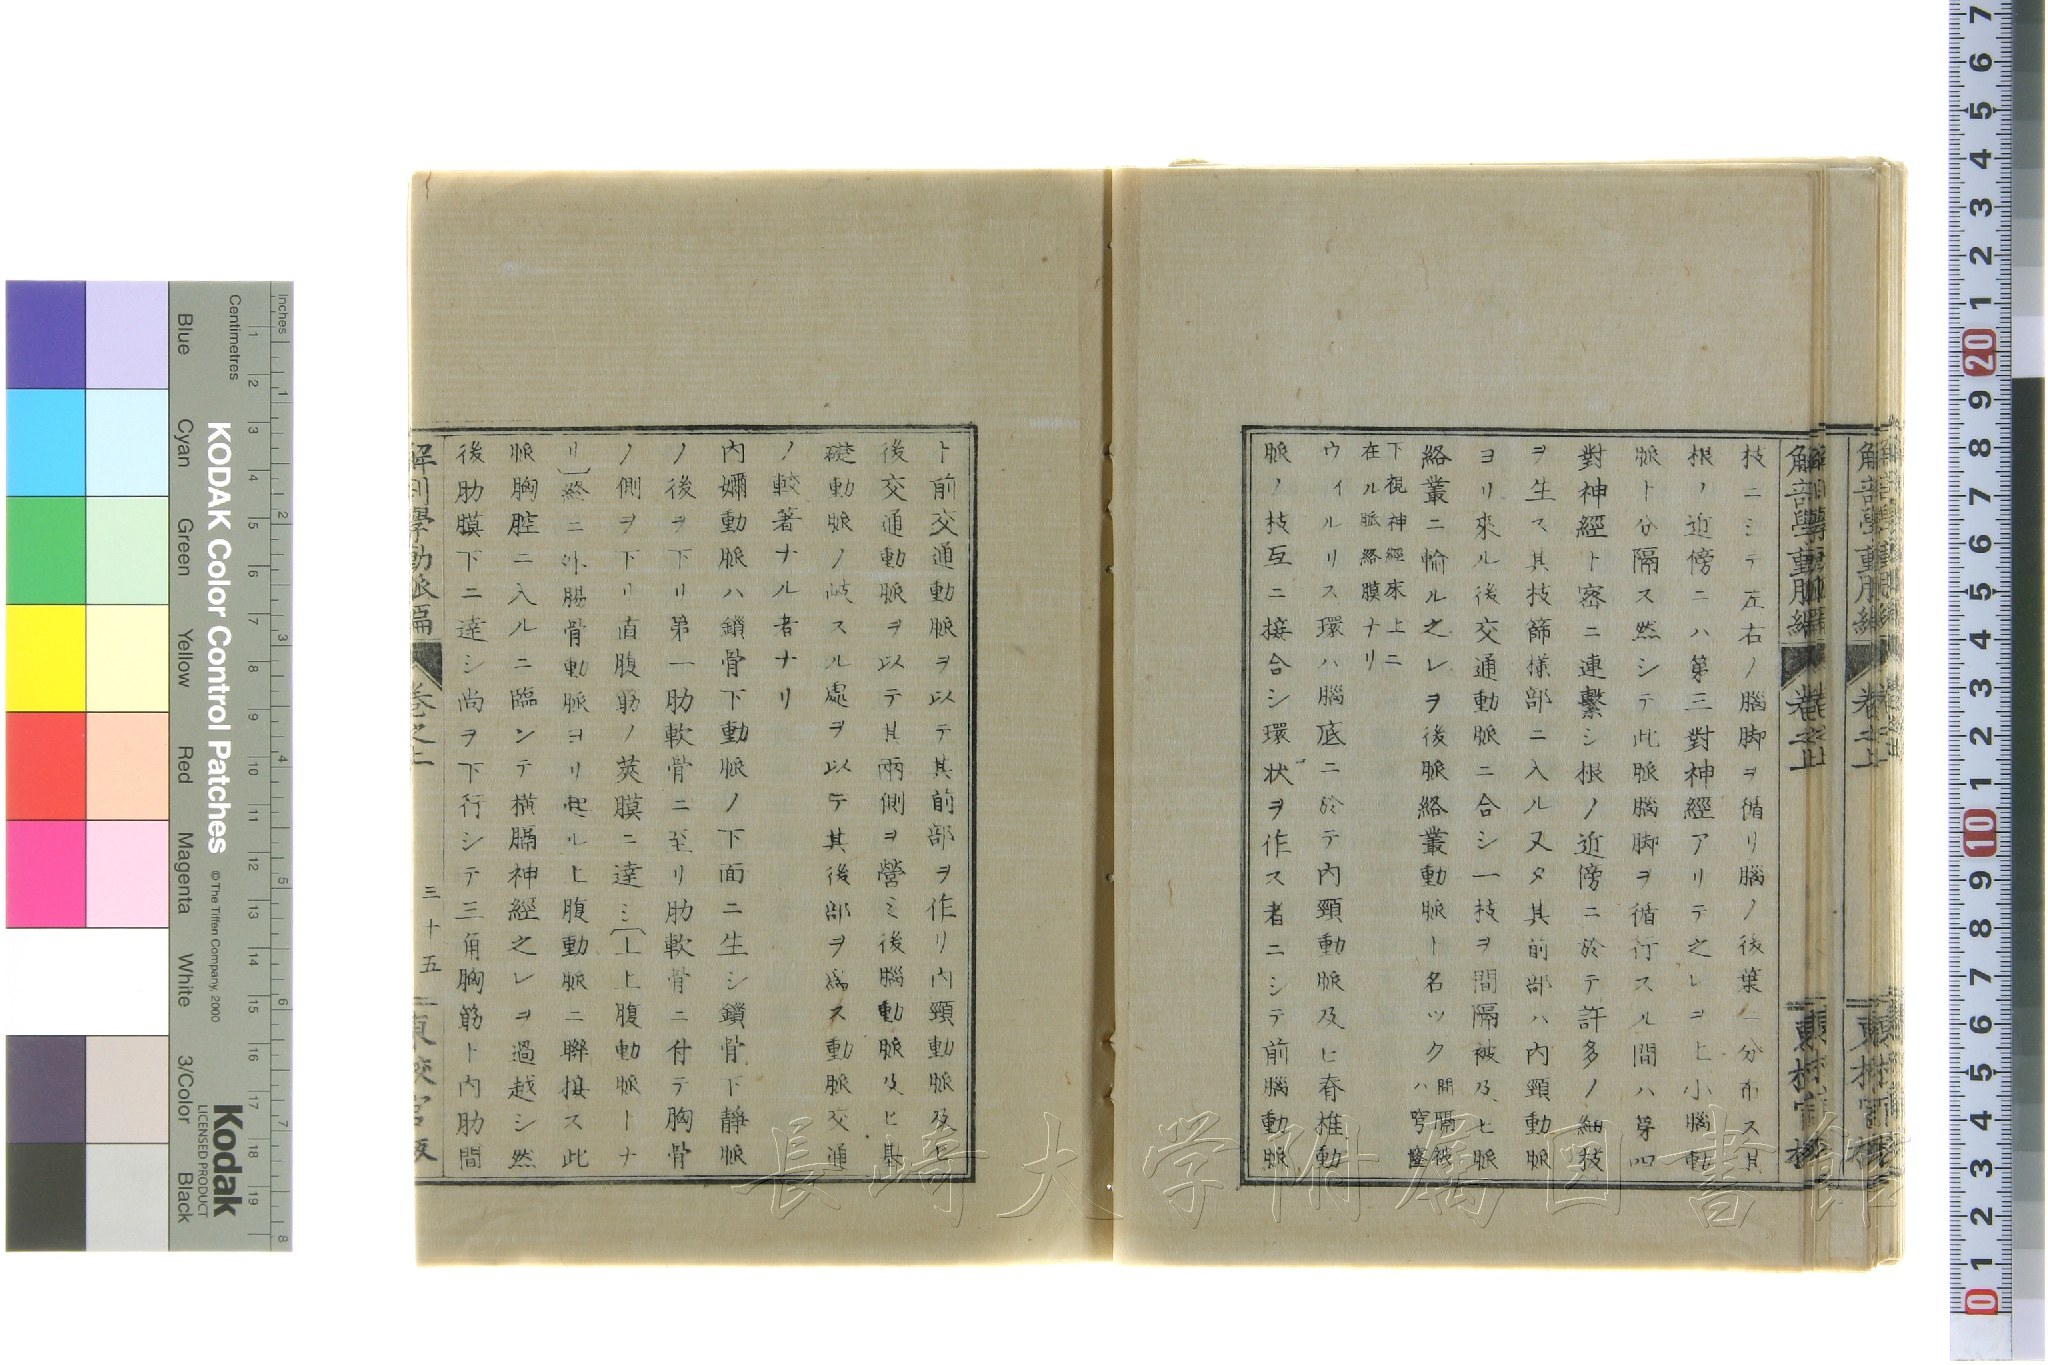 技ニシテ左右ノ腦脚ヲ循リ腦ノ後葉一分布ス其
根ノ近傍ニハ第三對神經アリテ之レヲ上小腦動
脈ト分隔ス然シテ此脈腦脚ヲ循行スル間ハ第四
對神經ト密ニ連繫シ根ノ近傍ニ於テ許多ノ細技
ヲ生ス其技篩樣部ニ入ル又タ其前部ハ内頸動脈
ヨリ來ル後交通動脈ニ合シ一技ヲ間隔被及ヒ脈
絡叢ニ輸ル之レヲ後脈絡叢動脈ト名ツク間隔被ハ穹窿
下視神經床上ニ
在ル脈絡膜ナリ
ウィルリス環ハ腦底ニ於テ内頸動脈及ヒ脊椎動
脈ノ技互ニ接合シ環状ヲ作ス者ニシテ前腦動脈
ト前交通動脈ヲ以テ其前部ヲ作リ内頸動脈及ヒ
後交通動脈ヲ以テ其兩側ヲ營ミ後腦動脈及ヒ基
礎動脈ノ岐スル處ヲ以テ其後部ヲ為ス動脈交通
ノ較著ナル者ナリ
内嬭動脈ハ鎖骨下動脈ノ下面ニ生シ鎖骨下靜脈
ノ後ヲ下リ第一肋軟骨ニ至リ肋軟骨ニ付テ胸骨
ノ側ヲ下リ直腹筋ノ莢膜ニ達シ〔上上腹動脈トナ
リ〕終ニ外腸骨動脈ヨリ起ル上腹動脈ニ聯接ス此
脈胸腔ニ入ルニ臨ンテ横膈神經之レヲ過越シ然
後肋膜下ニ達シ尚ヲ下行シテ三角胸筋ト内肋間
解剖學動脈篇 卷之上 三十五
長崎大学附属図書館
KODAK Color Control Patches
© The Tiffen Company, 2000
Kodak
LICENSED PRODUCT
Inches
Centimetres
Blue Cyan Green Yellow Red Magenta White 3/Color Black